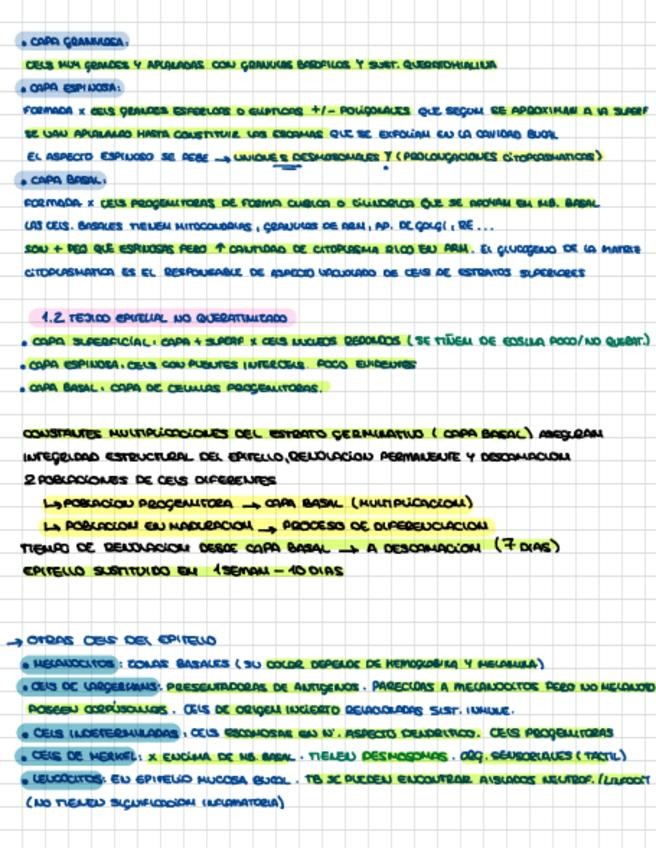 • CAPA GRANULOSA:
CELS MUY GRANDES Y APLANADAS CON GRANULOS BASOFILOS Y SUST. QUERATOHIALINA
• CAPA ESPINOSA:
FORMADA X CELS GRANDES ESFERICAS O ELIPTICAS +/- POLIGONALES QUE SEGUN SE APROXIMAN A LA SUPERF
SE VAN APLANANDO HASTA CONSTITUIR LAS ESCAMAS QUE SE EXFOLIAN EN LA CAVIDAD BUCAL
EL ASPECTO ESPINOSO SE DEBE → UNIONES DESMOSOMALES Y (PROLONGACIONES CITOPLASMATICAS)
• CAPA BASAL:
FORMADA X CELS PROGENITORAS DE FORMA CUBICA O CILINDRICA QUE SE APOYAN EN MB. BASAL
LAS CELS. BASALES TIENEN MITOCONDRIAS, GRANULOS DE ARN, AP. DE GOLGI, RE...
SON + PEQ QUE ESPINOSAS PERO ↑ CANTIDAD DE CITOPLASMA RICO EN ARN. EL GLUCOGENO DE LA MATRIZ
CITOPLASMATICA ES EL RESPONSABLE DE ASPECTO VACUOLADO DE CELS DE ESTRATOS SUPERIORES
1.2 TEJIDO EPITELIAL NO QUERATINIZADO
• CAPA SUPERFICIAL: CAPA + SUPERF X CELS NUCLEOS REDONDOS (SE TIÑEN DE EOSINA POCO/NO QUERAT.)
• CAPA ESPINOSA: CELS CON PUENTES INTERCELS. POCO EVIDENTES
• CAPA BASAL: CAPA DE CELULAS PROGENITORAS.
CONSTANTES MULTIPLICACIONES DEL ESTRATO GERMINATIVO (CAPA BASAL) ASEGURAN
INTEGRIDAD ESTRUCTURAL DEL EPITELIO, RENOVACION PERMANENTE Y DESCAMACION
2 POBLACIONES DE CELS DIFERENTES
↳ POBLACION PROGENITORA → CAPA BASAL (MULTIPLICACION)
↳ POBLACION EN MADURACION → PROCESO DE DIFERENCIACION
TIEMPO DE RENOVACION DESDE CAPA BASAL → A DESCAMACION (7 DIAS)
EPITELIO SUSTITUIDO EN 1 SEMAN - 10 DIAS
→ OTRAS CELS DEL EPITELIO
• MELANOCITOS: ZONAS BASALES (SU COLOR DEPENDE DE HEMOGLOBINA Y MELANINA)
• CELS DE LARGERHANS: PRESENTADORAS DE ANTIGENOS. PARECIDAS A MELANOCITOS PERO NO MELANO
POSEEN CORPUSCULOS. CELS DE ORIGEN INCIERTO RELACIONADAS SIST. INMUNE.
• CELS INDETERMINADAS: CELS ESCAMOSAS EN Nº. ASPECTO DENDRITICO. CELS PROGENITORAS
• CELS DE MERKEL: X ENCIMA DE MB. BASAL. TIENEN DESMOSOMAS. ORG. SENSORIALES (TACTIL)
• LEUCOCITOS: EN EPITELIO MUCOSA BUCAL. TB SE PUEDEN ENCONTRAR AISLADOS NEUTROF./LINFOCIT
(NO TIENEN SIGNIFICACION INFLAMATORIA)